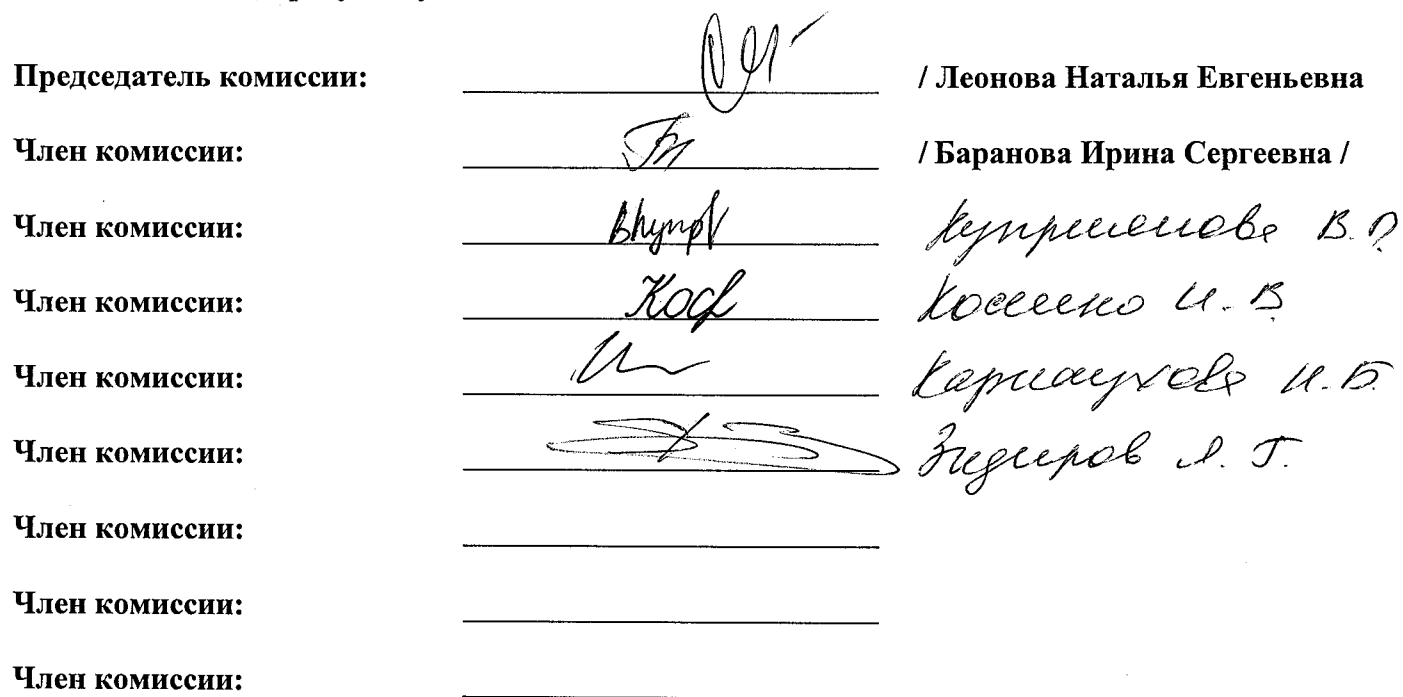 Председатель комиссии: / Леонова Наталья Евгеньевна
Член комиссии: / Баранова Ирина Сергеевна /
Член комиссии: Куприянова В.
Член комиссии: И. В.
Член комиссии: Карнаухова И. Б.
Член комиссии: Зидиров Г.
Член комиссии:
Член комиссии:
Член комиссии: